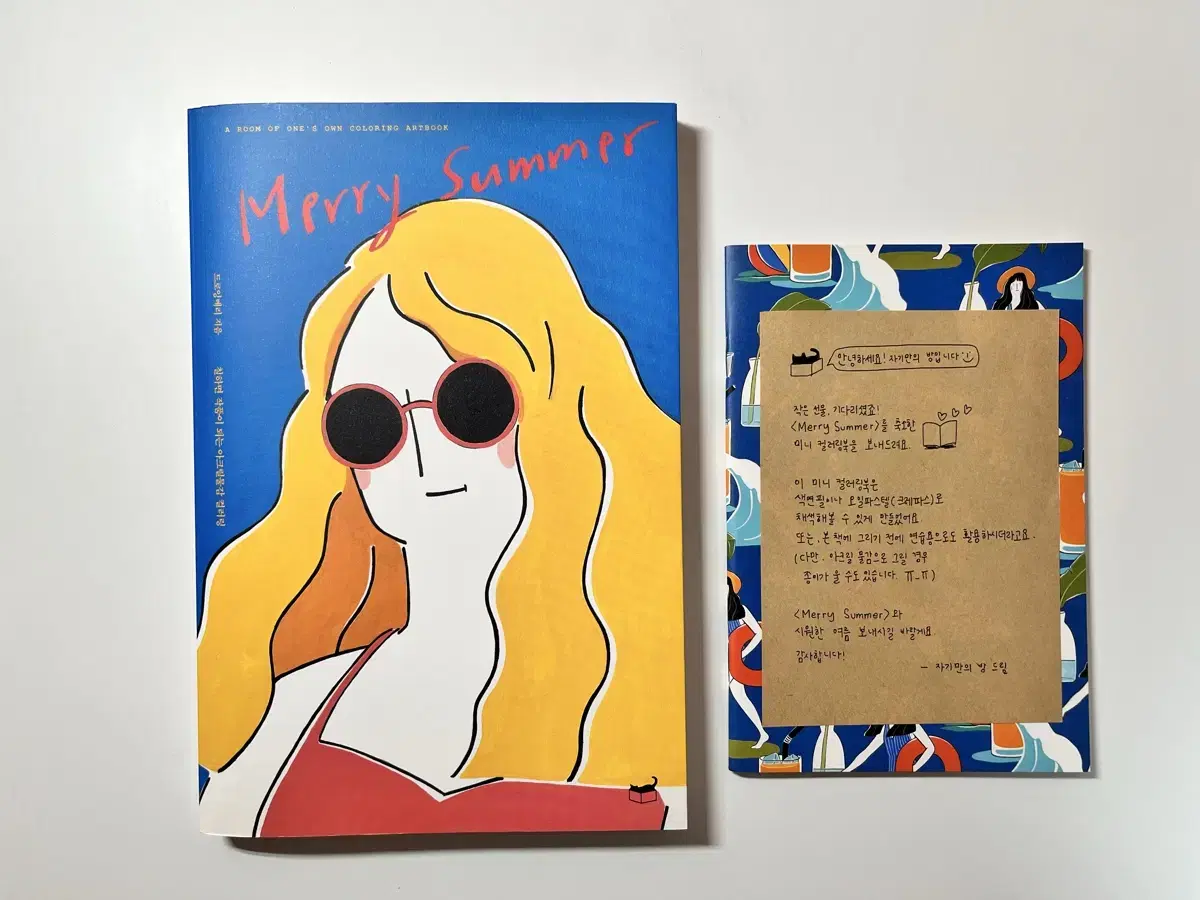 A ROOM OF ONE'S OWN COLORING ARTBOOK
Merry Summer
드로잉메리 지음
칠하면 작품이 되는 아크릴물감 컬러링
안녕하세요! 자기만의 방입니다 :)
작은 선물, 기다리셨죠!
<Merry Summer>를 축하한
미니 컬러링북을 보내드려요.
이 미니 컬러링북은
색연필이나 오일파스텔(크레파스)로
채색해볼 수 있게 만들었어요
또는, 본 책에 그리기 전에 연습용으로도 활용하시더라고요.
(다만, 아크릴 물감으로 그릴 경우
종이가 울 수도 있습니다. ㅠ_ㅠ)
<Merry Summer>와
시원한 여름 보내시길 바랄게요.
감사합니다!
- 자기만의 방 드림